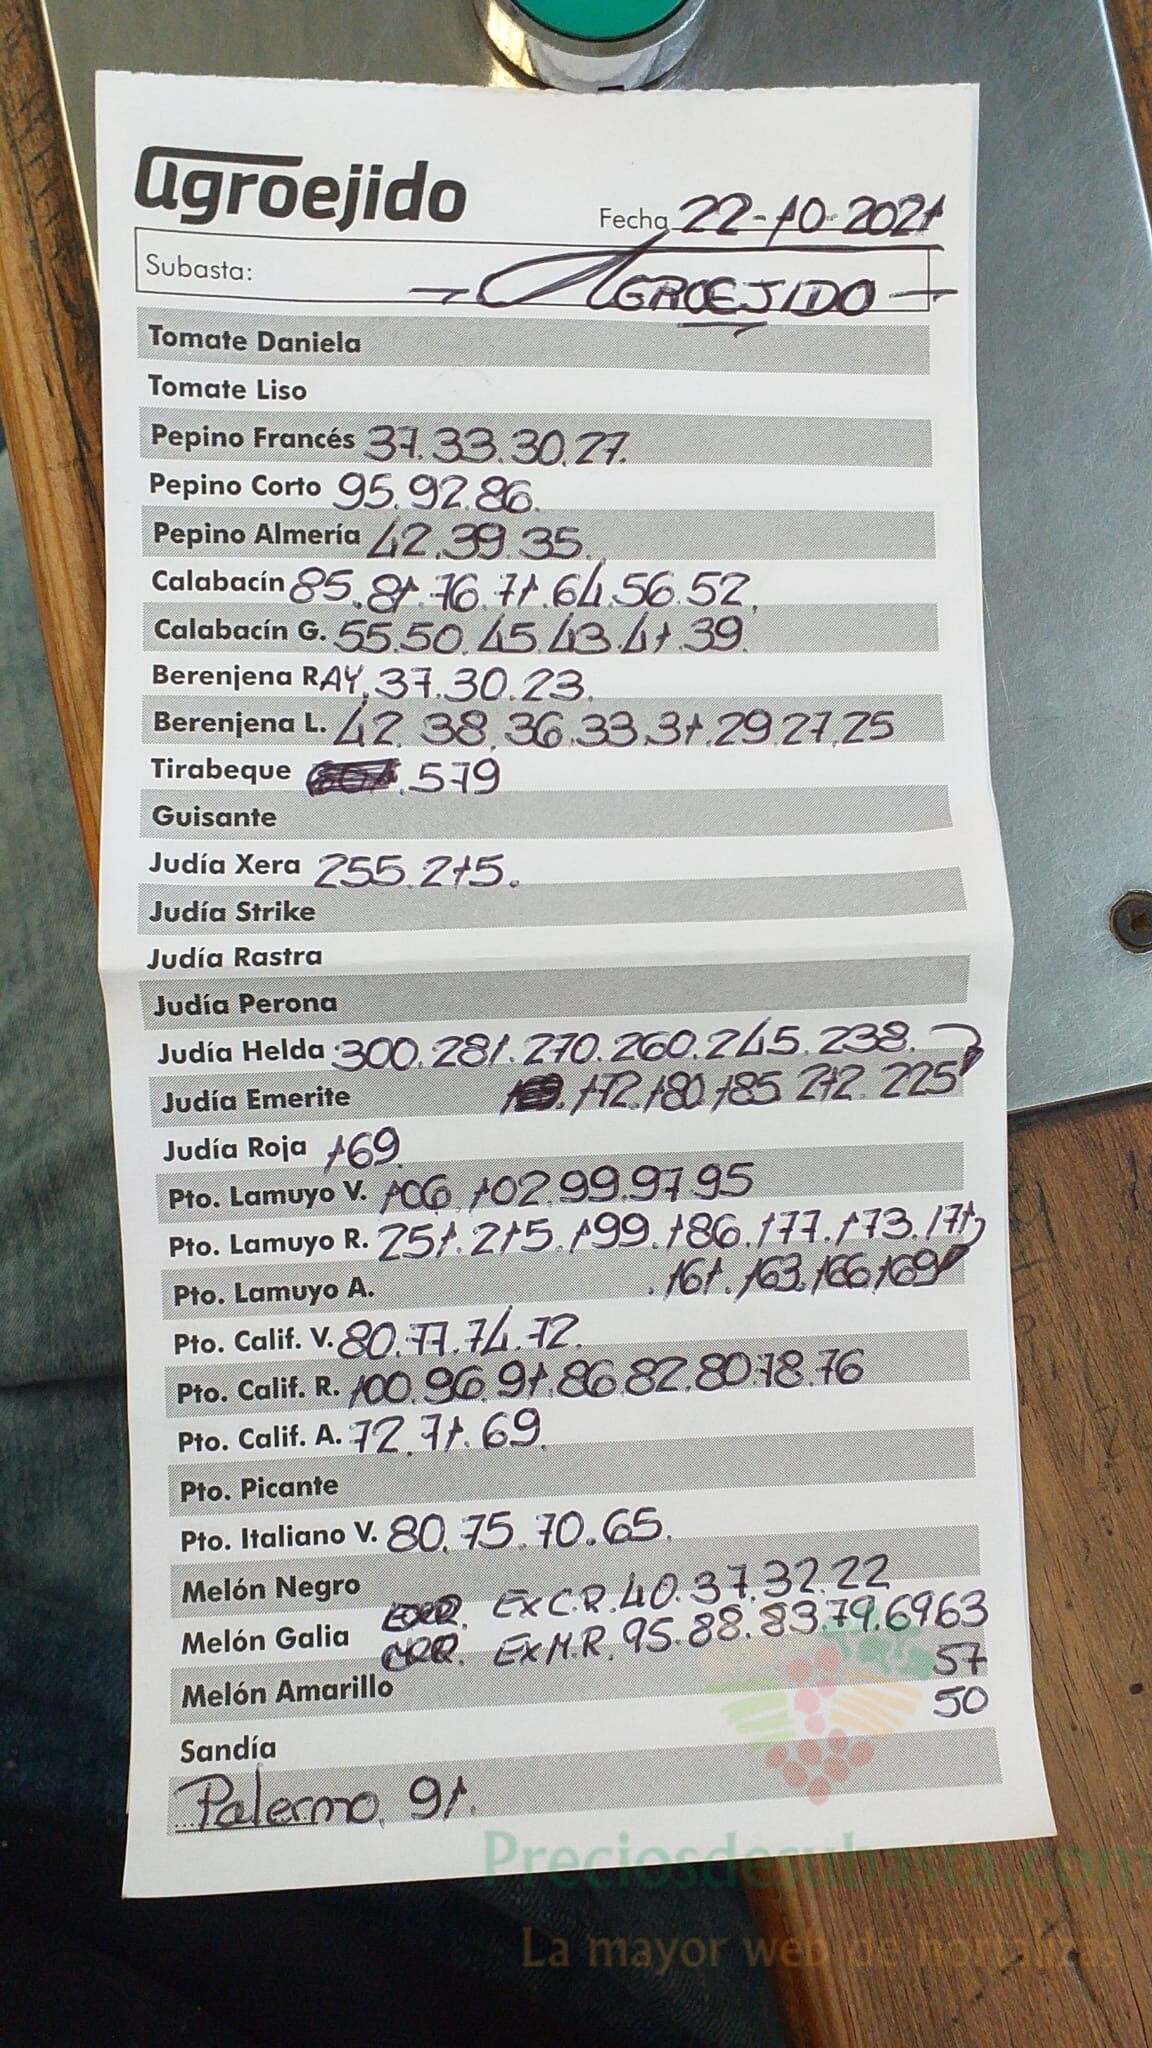 agroejido
Fecha 22-10-2021
Subasta: AGROEJIDO
Tomate Daniela
Tomate Liso
Pepino Francés 37.33.30.27.
Pepino Corto 95.92.86.
Pepino Almería 42.39.35.
Calabacín 85.81.76.71.64.56.52.
Calabacín G. 55.50.45.43.41.39.
Berenjena RAY.37.30.23.
Berenjena L. 42.38.36.33.31.29.27.25
Tirabeque .579
Guisante
Judía Xera 255.215.
Judía Strike
Judía Rastra
Judía Perona
Judía Helda 300.281.270.260.245.238.
Judía Emerite .172.180.185.212.225
Judía Roja 169.
Pto. Lamuyo V. 106.102.99.97.95
Pto. Lamuyo R. 251.215.199.186.177.173.171
Pto. Lamuyo A. .161.163.166.169
Pto. Calif. V. 80.77.74.72.
Pto. Calif. R. 100.96.91.86.82.80.78.76
Pto. Calif. A. 72.71.69.
Pto. Picante
Pto. Italiano V. 80.75.70.65.
Melón Negro ExC.R.40.37.32.22
Melón Galia ExM.R.95.88.83.79.6963
Melón Amarillo 57
50
Sandía
Palermo. 91.
Preciosdesubasta.com
La mayor web de hortalizas